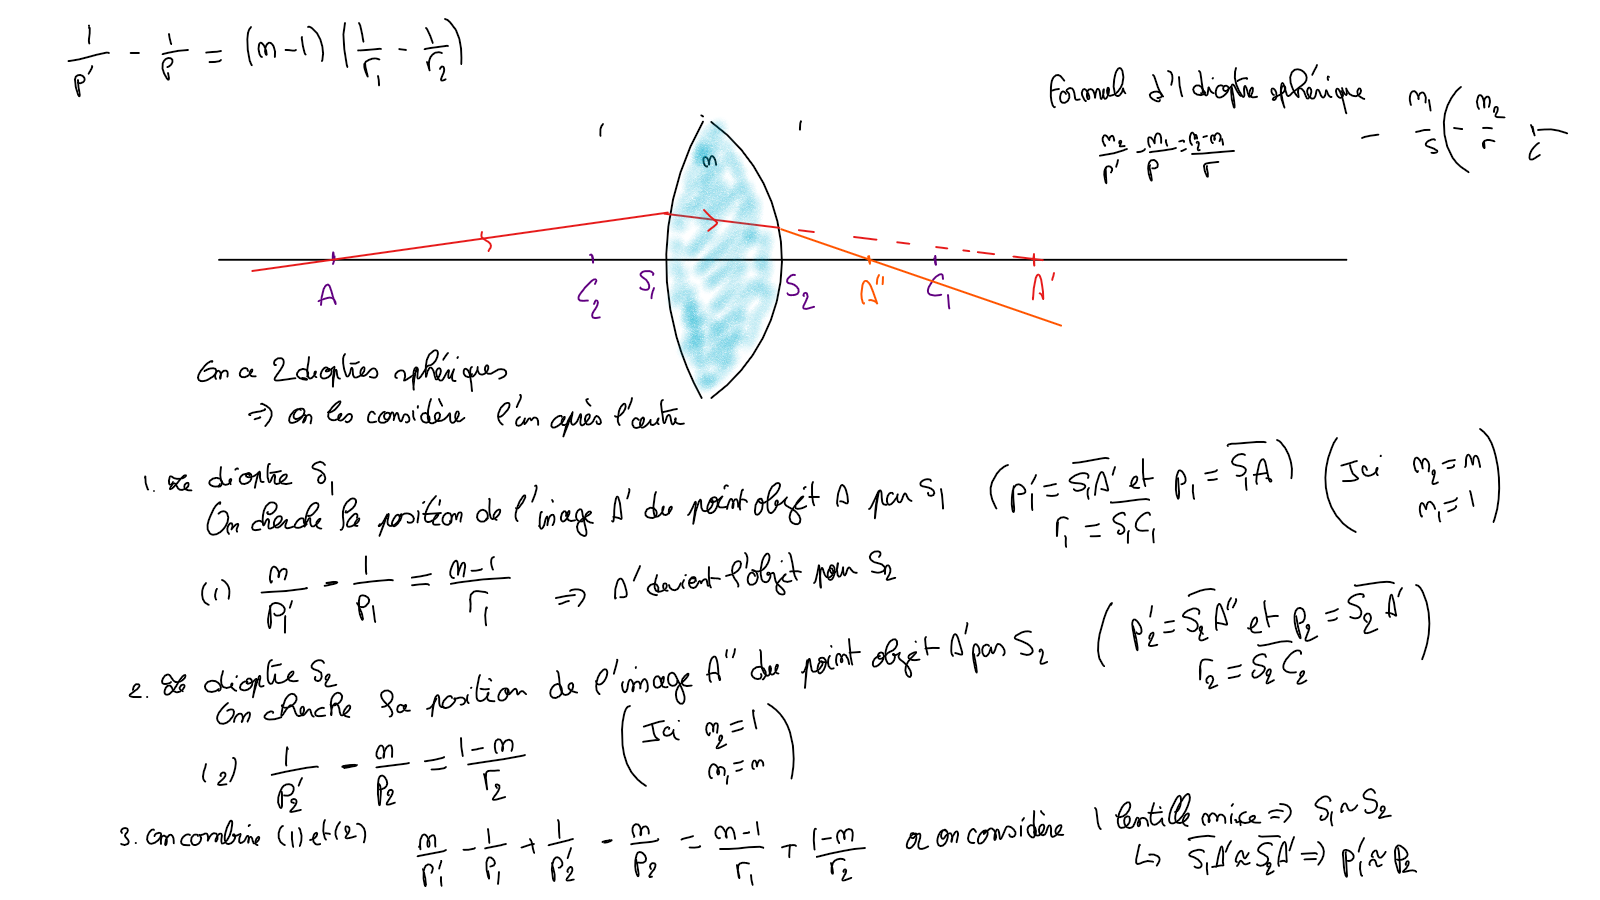 1/p' - 1/p = (n-1) (1/r₁ - 1/r₂)
Formule d'1 dioptre sphérique
n₂/p' - n₁/p = n₂-n₁/r
- n₁/s ( - n₂/r
n
A
C₂
S₁
S₂
A''
C₁
A'
On a 2 dioptres sphériques
=> on les considère l'un après l'autre
1. Le dioptre S₁
On cherche la position de l'image A' du point objet A par S₁ (p₁' = S₁A' et p₁ = S₁A) (Ici n₂ = n
r₁ = S₁C₁ n₁ = 1)
(1) n/p₁' - 1/p₁ = n-1/r₁ => A' devient l'objet pour S₂
2. Le dioptre S₂
On cherche la position de l'image A'' du point objet A' par S₂ (p₂' = S₂A'' et p₂ = S₂A'
r₂ = S₂C₂)
(2) 1/p₂' - n/p₂ = 1-n/r₂ (Ici n₂ = 1
n₁ = n)
3. On combine (1) et (2) n/p₁' - 1/p₁ + 1/p₂' - n/p₂ = n-1/r₁ + 1-n/r₂ or on considère 1 lentille mince => S₁ ~ S₂
↳ S₁A' ≈ S₂A' => p₁' ≈ p₂